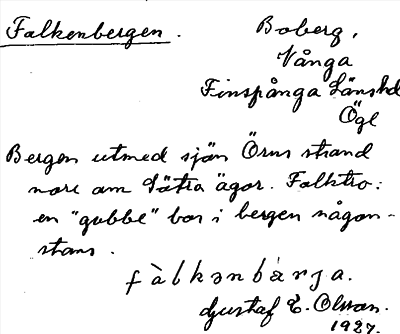 Falkenbergen.
Boberg,
Vånga
Finspånga Länshd
Ögl
Bergen utmed sjön Örns strand
norr om Sätra ägor. Folktro:
en "gubbe" bor i bergen någon-
stans.
fàlkənbǽrja.
Gustaf E. Olsson.
1927.